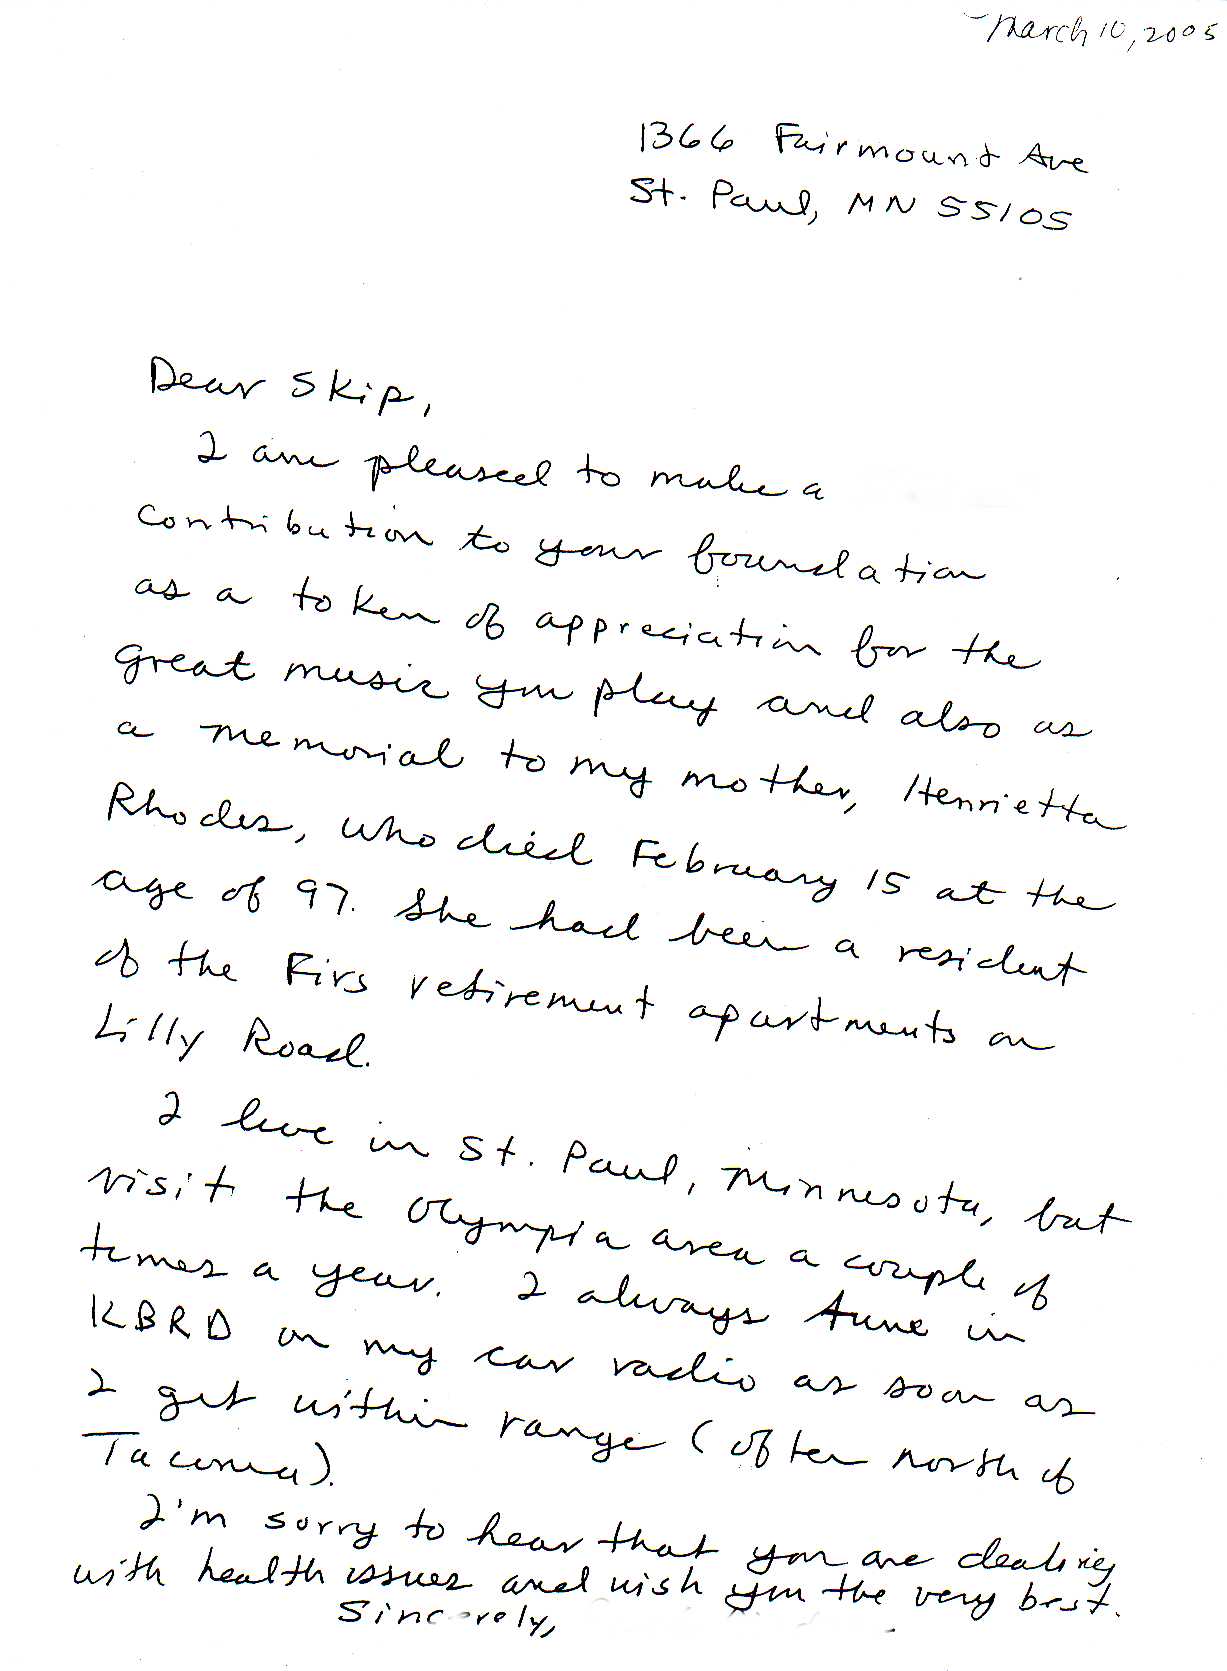 March 10, 2005
1366 Fairmount Ave
St. Paul, MN 55105
Dear Skip,
I am pleased to make a
contribution to your foundation
as a token of appreciation for the
great music you play and also as
a memorial to my mother, Henrietta
Rhodes, who died February 15 at the
age of 97. She had been a resident
of the Firs retirement apartments on
Lilly Road.
I live in St. Paul, Minnesota, but
visit the Olympia area a couple of
times a year. I always tune in
KBRD on my car radio as soon as
I get within range (often north of
Tacoma).
I'm sorry to hear that you are dealing
with health issues and wish you the very best.
Sincerely,